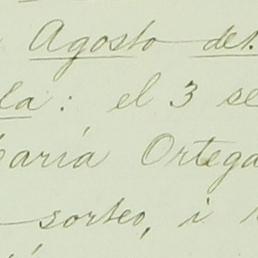 Agosto del
la: el 3 se
aría Ortega
sorteo, i